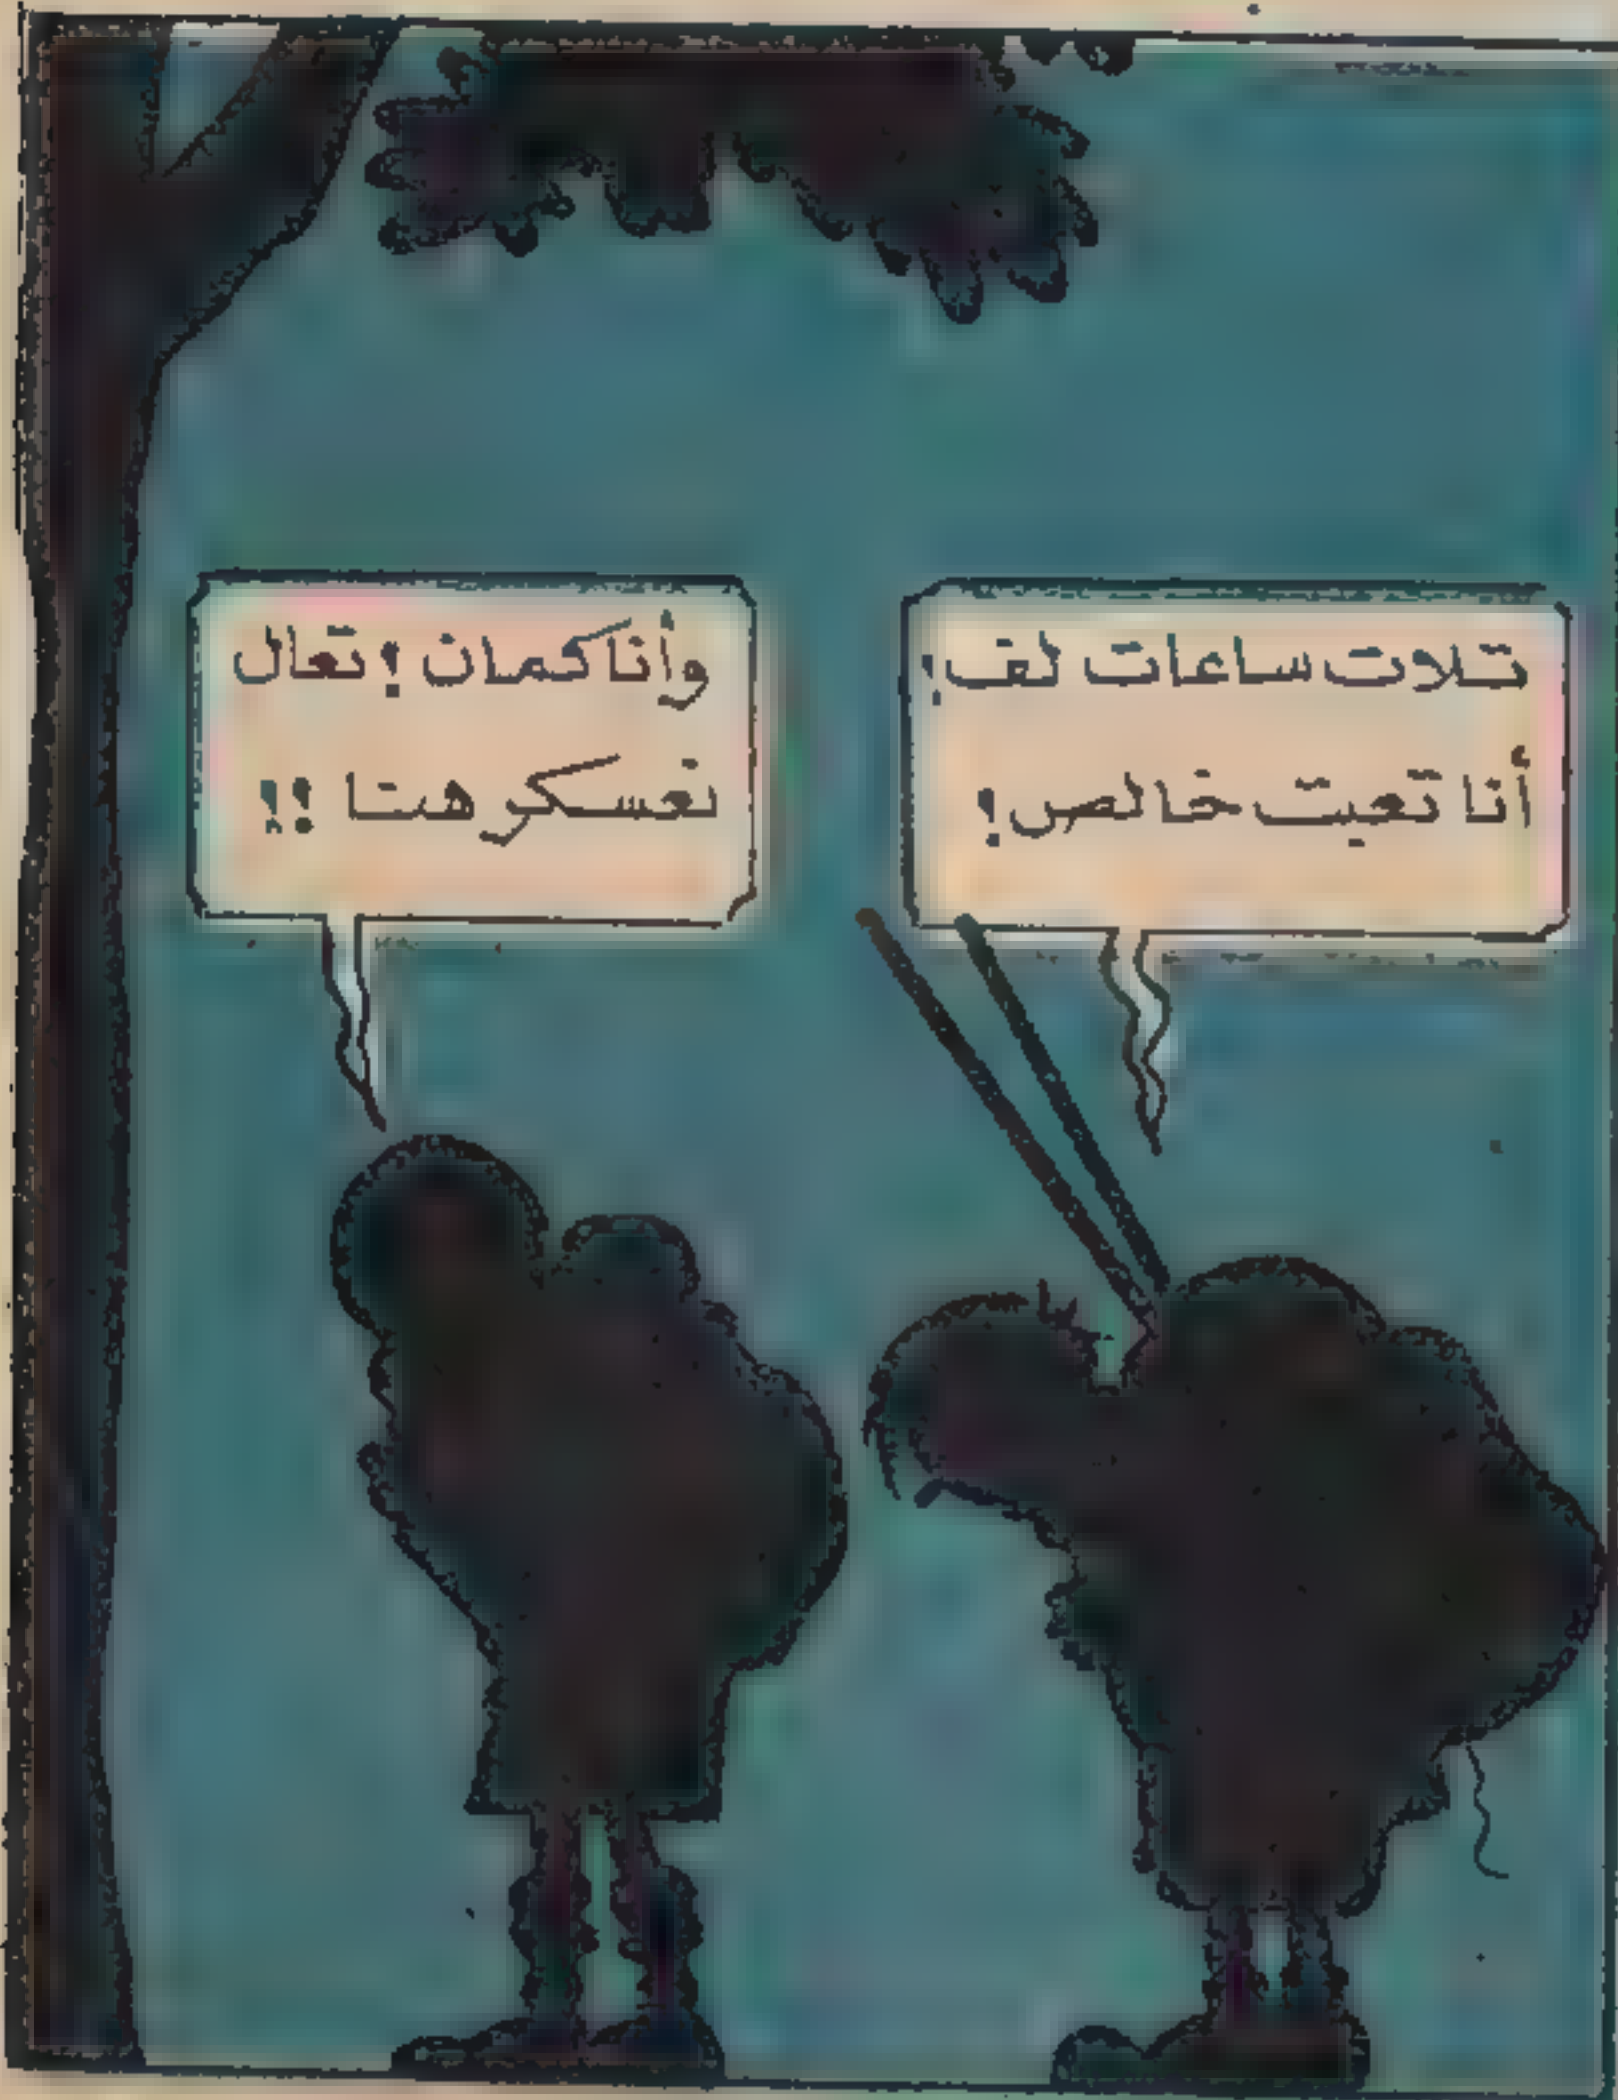 تلات ساعات لف!
أنا تعبت خالص!
وأنا كمان! تعال
نعسكر هنا!!